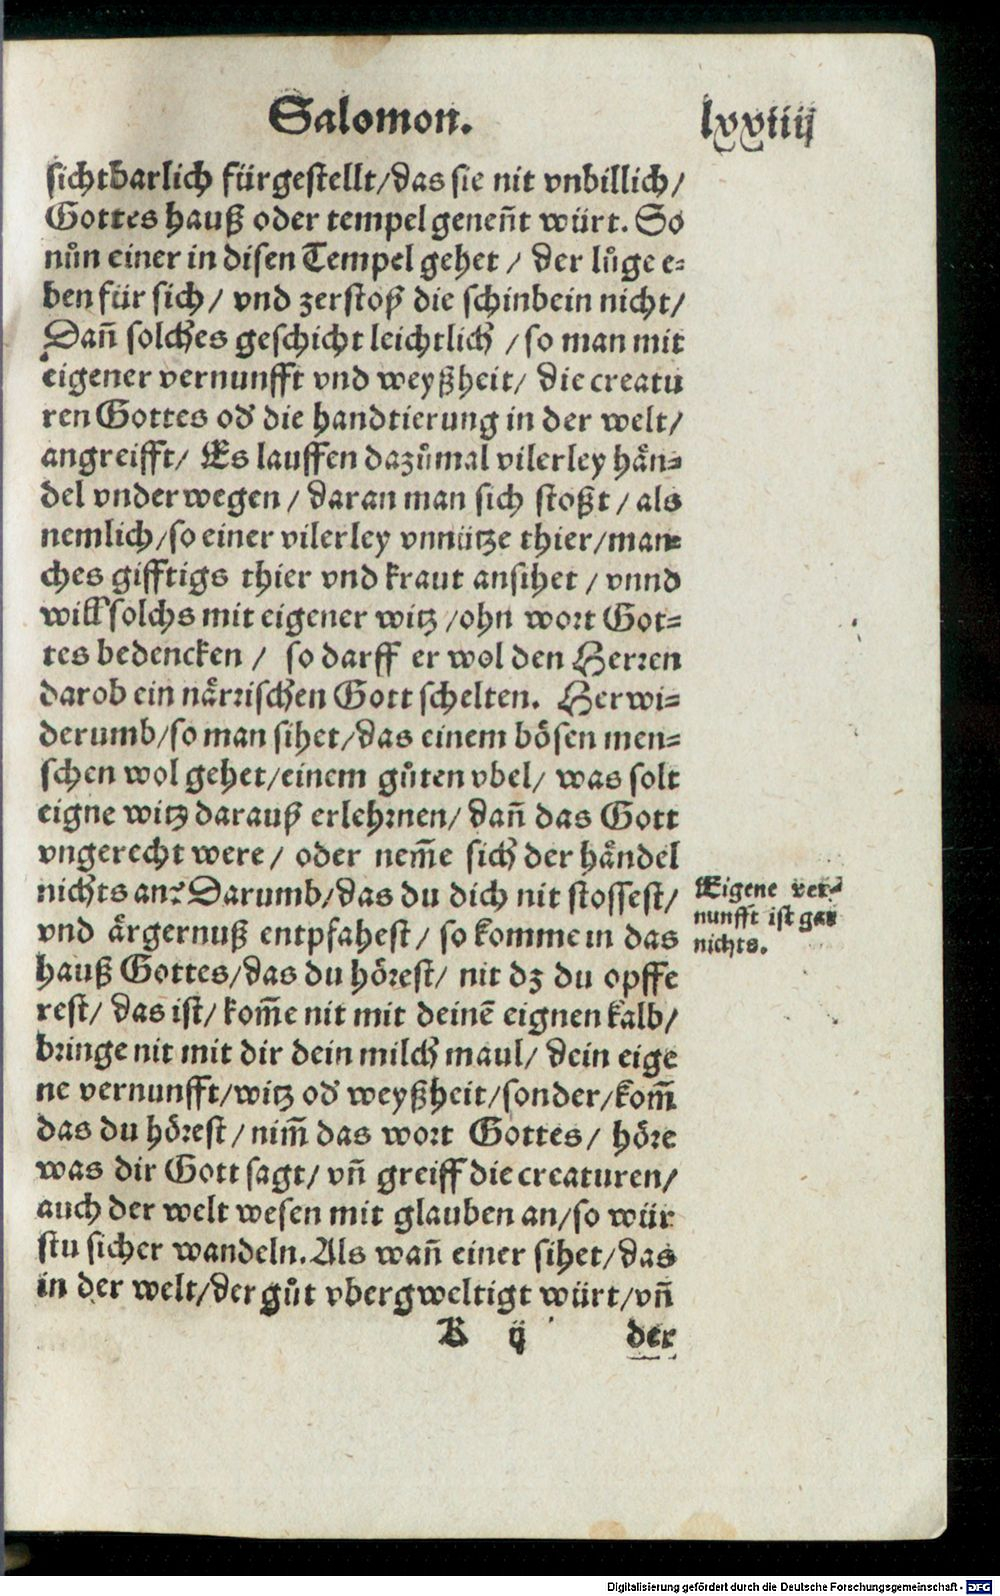 Salomon. lxxiiij
sichtbarlich fürgestellt/das sie nit vnbillich/
Gottes hauß oder tempel geneñt würt. So
nůn einer in disen Tempel gehet / der lůge e⸗
ben für sich/ vnd zerstoß die schinbein nicht/
Dañ solches geschicht leichtlich /so man mit
eigener vernunfft vnd weyßheit/ die creatu
ren Gottes od' die handtierung in der welt/
angreifft/ Es lauffen dazůmal vilerley hän⸗
del vnderwegen / daran man sich stoßt / als
nemlich/so einer vilerley vnnütze thier/man⸗
ches gifftigs thier vnd kraut ansihet / vnnd
will solchs mit eigener witz /ohn wort Got⸗
tes bedencken / so darff er wol den Herren
darob ein närrischen Gott schelten. Herwi⸗
derumb/so man sihet/das einem bösen men⸗
schen wol gehet/einem gůten vbel/ was solt
eigne witz darauß erlehrnen/ dañ das Gott
vngerecht were / oder nem̃e sich der händel
nichts an? Darumb/das du dich nit stossest/
vnd ärgernuß entpfahest / so komme in das
hauß Gottes/das du hörest/ nit dz du opffe
rest/ das ist/ kom̃e nit mit deinẽ eignen kalb/
bringe nit mit dir dein milch maul/ dein eige
ne vernunfft/witz od' weyßheit/sonder/kom̃
das du hörest / nim̃ das wort Gottes / höre
was dir Gott sagt/ vñ greiff die creaturen/
auch der welt wesen mit glauben an/so wür
stu sicher wandeln. Als wañ einer sihet/das
in der welt/der gůt vbergweltigt würt/vñ
Eigene ver⸗
nunfft ist gar
nichts.
K ij der
Digitalisierung gefördert durch die Deutsche Forschungsgemeinschaft - DFG